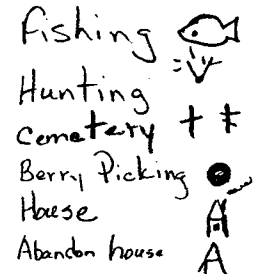 Fishing
Hunting
Cemetery
Berry Picking
House
Abandon house